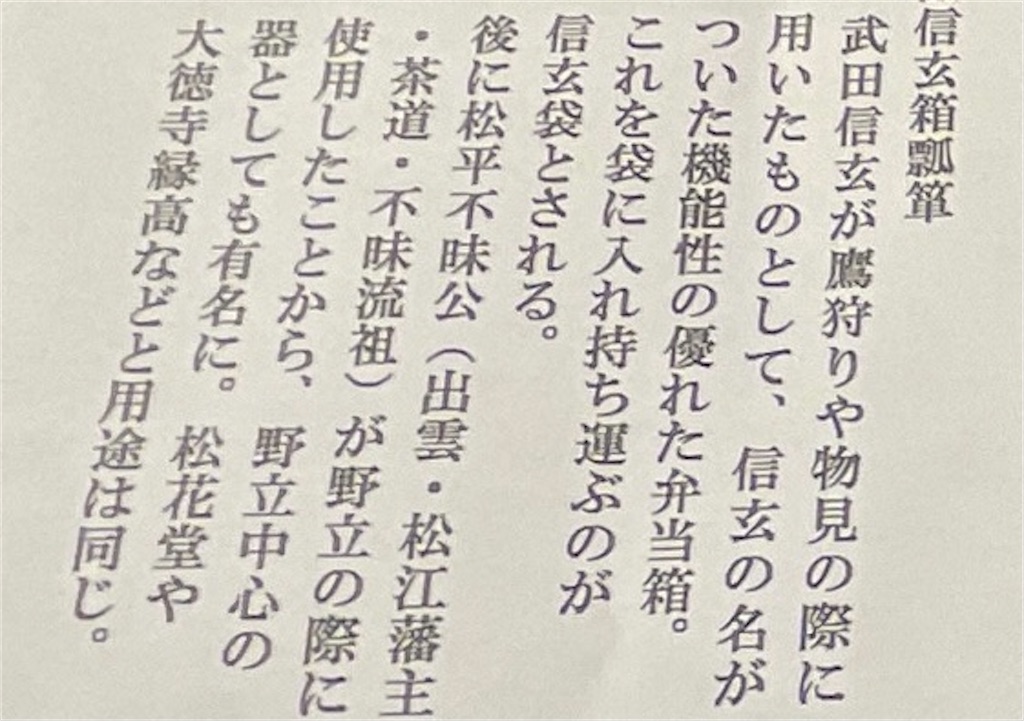 信玄箱瓢箪
武田信玄が鷹狩りや物見の際に
用いたものとして、信玄の名が
ついた機能性の優れた弁当箱。
これを袋に入れ持ち運ぶのが
信玄袋とされる。
後に松平不昧公（出雲・松江藩主
・茶道・不昧流祖）が野立の際に
使用したことから、野立中心の
器としても有名に。松花堂や
大徳寺縁高などと用途は同じ。